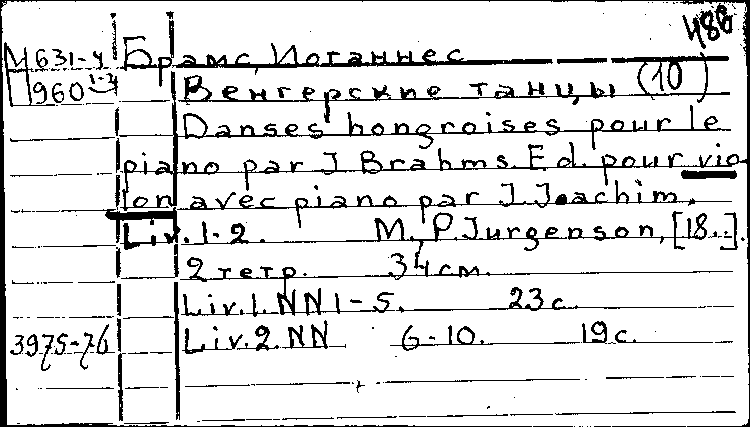 488
М631-4 Брамс, Иоганнес
П960 1-2 Венгерские танцы (10)
Danses hongroises pour le
piano par J Brahms. Ed. pour vio
lon avec piano par J. Joachim.
Liv. 1-2. M., P. Jurgenson, [18..].
2 тетр. 34 см.
Liv. 1. NN 1-5. 23 с.
3975-76 Liv. 2. NN 6-10. 19 с.